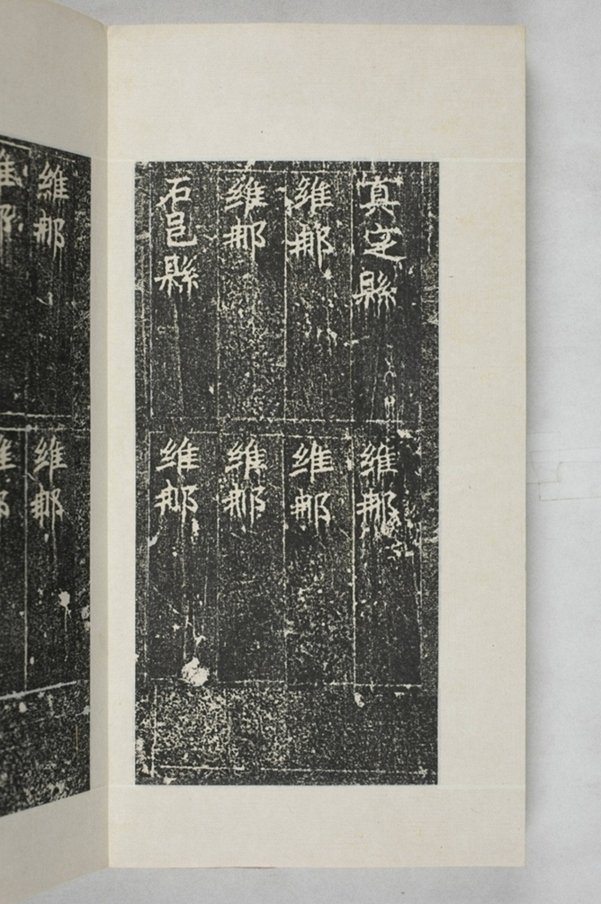 真定縣
維那
維那
石邑縣
維那
維那
維那
維那
維那
維那